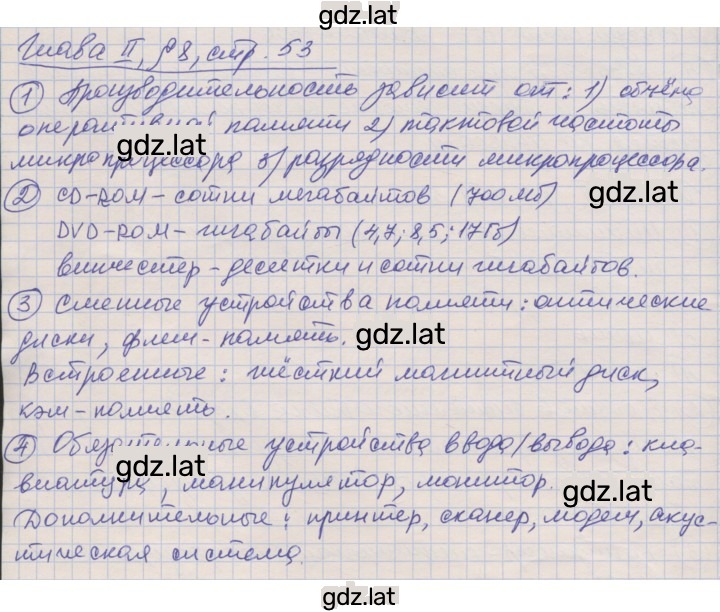 gdz.lat
Глава II, §8, стр. 53
① Производительность зависит от: 1) объёма
оперативной памяти 2) тактовой частоты
gdz.lat
микропроцессора 3) разрядности микропроцессора.
② CD-ROM - сотни мегабайтов (700Мб)
gdz.lat
DVD-ROM - гигабайты (4,7; 8,5; 17Гб)
винчестер - десятки и сотни гигабайтов.
③ Сменные устройства памяти: оптические
диски, флеш-память.
gdz.lat
Встроенные: жёсткий магнитный диск,
кэш-память.
④ Обязательные устройства ввода/вывода: кла-
gdz.lat
виатура, манипулятор, монитор.
gdz.lat
Дополнительные: принтер, сканер, модем, акус-
тическая система.
gdz.lat